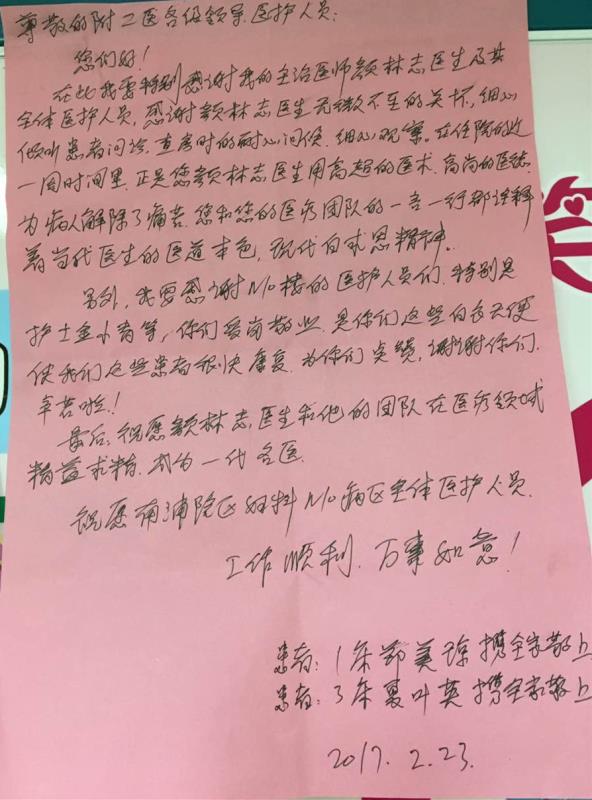 尊敬的附二医各级领导、医护人员：
您们好！
在此我要特别感谢我的主治医师颜林志医生及其
全体医护人员，感谢颜林志医生无微不至的关怀，细心
倾听患者问诊，查房时的耐心问候，细心观察。在住院的近
一周时间里，正是您颜林志医生用高超的医术、高尚的医德
为病人解除了痛苦，您和您的医疗团队的一言一行都诠释
着当代医生的医道本色，现代白求恩精神。
另外，我要感谢110楼的医护人员们，特别是
护士金小青等，你们爱岗敬业，是你们这些白衣天使
使我们这些患者很快康复，为你们点赞，谢谢你们，
辛苦啦！
最后，祝愿颜林志医生和他的团队在医疗领域
精益求精，成为一代名医。
祝愿南浦院区妇科110病区全体医护人员，
工作顺利，万事如意！
患者：1床郑美琼携全家敬上
患者：3床夏叶英携全家敬上
2017.2.23.